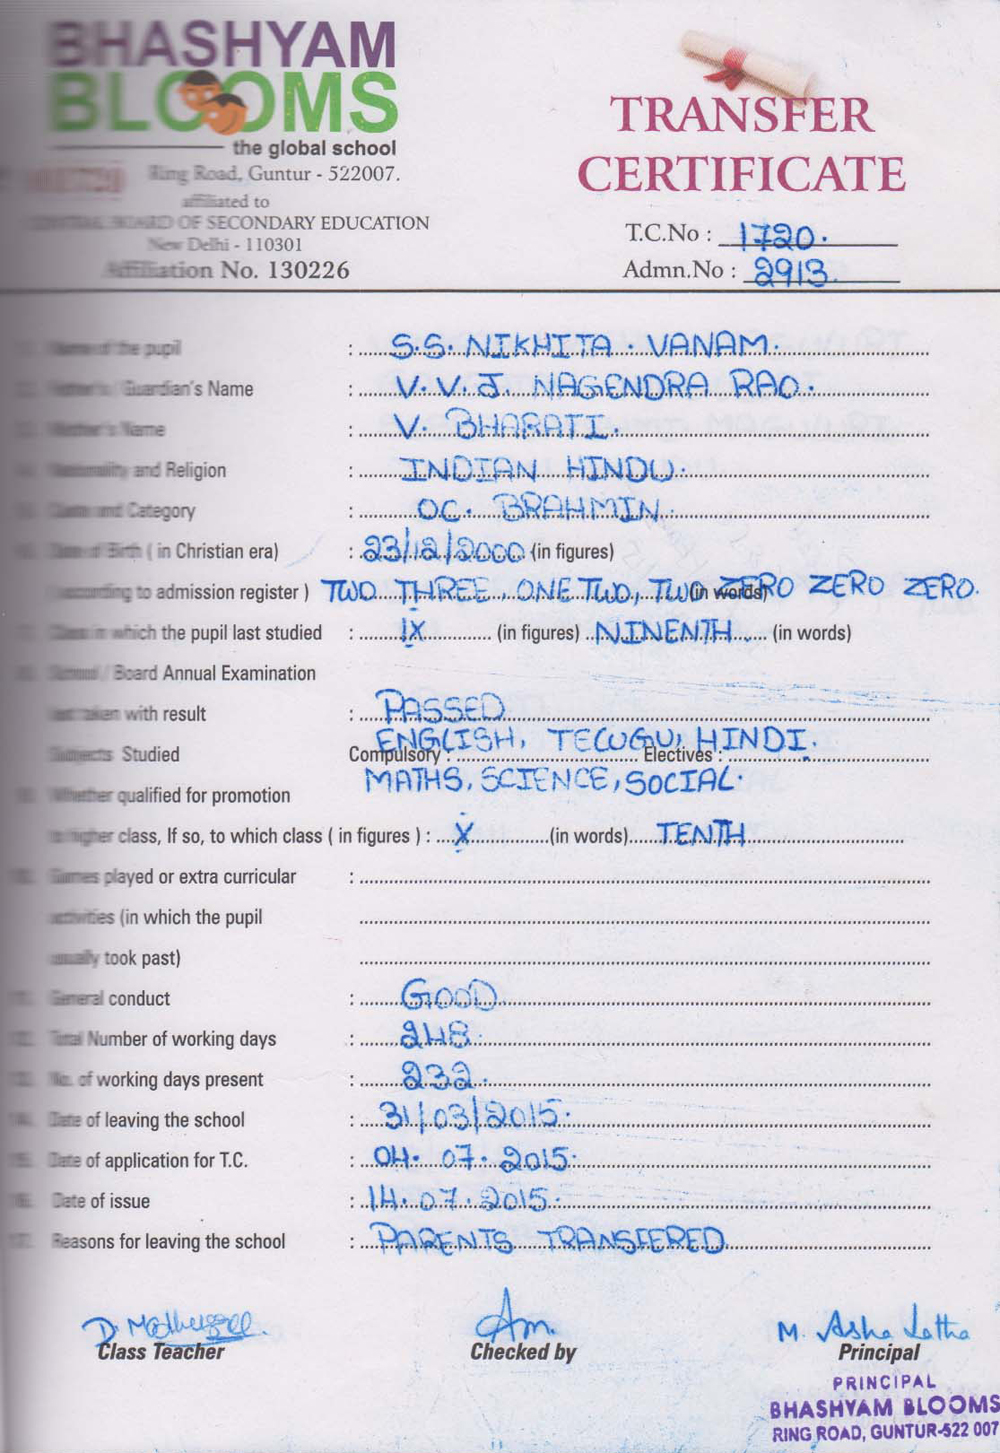 BHASHYAM
BLOOMS
the global school
Ring Road, Guntur - 522007.
affiliated to
CENTRAL BOARD OF SECONDARY EDUCATION
New Delhi - 110301
Affiliation No. 130226
TRANSFER
CERTIFICATE
T.C.No : 1720.
Admn.No : 2913.
Name of the pupil : S.S. NIKHITA . VANAM.
Father's / Guardian's Name : V. V. J. NAGENDRA RAO.
Mother's Name : V. BHARATI.
Nationality and Religion : INDIAN HINDU.
Caste and Category : OC. BRAHMIN.
Date of Birth ( in Christian era) : 23/12/2000 (in figures)
(according to admission register ) TWO THREE, ONE TWO, TWO ZERO ZERO ZERO. (in words)
7. Class in which the pupil last studied : IX (in figures) NINENTH (in words)
School / Board Annual Examination
last taken with result : PASSED
Subjects Studied Compulsory : ENGLISH, TELUGU, HINDI. Electives :
MATHS, SCIENCE, SOCIAL.
Whether qualified for promotion
to higher class, If so, to which class ( in figures ) : X (in words) TENTH
10. Games played or extra curricular :
activities (in which the pupil
usually took past)
11. General conduct : GOOD
12. Total Number of working days : 248.
13. No. of working days present : 232.
14. Date of leaving the school : 31/03/2015.
15. Date of application for T.C. : 04. 07. 2015.
16. Date of issue : 14. 07. 2015.
17. Reasons for leaving the school : PARENTS TRANSFERED
Class Teacher Checked by M. Asha Latha
Principal
PRINCIPAL
BHASHYAM BLOOMS
RING ROAD, GUNTUR-522 007